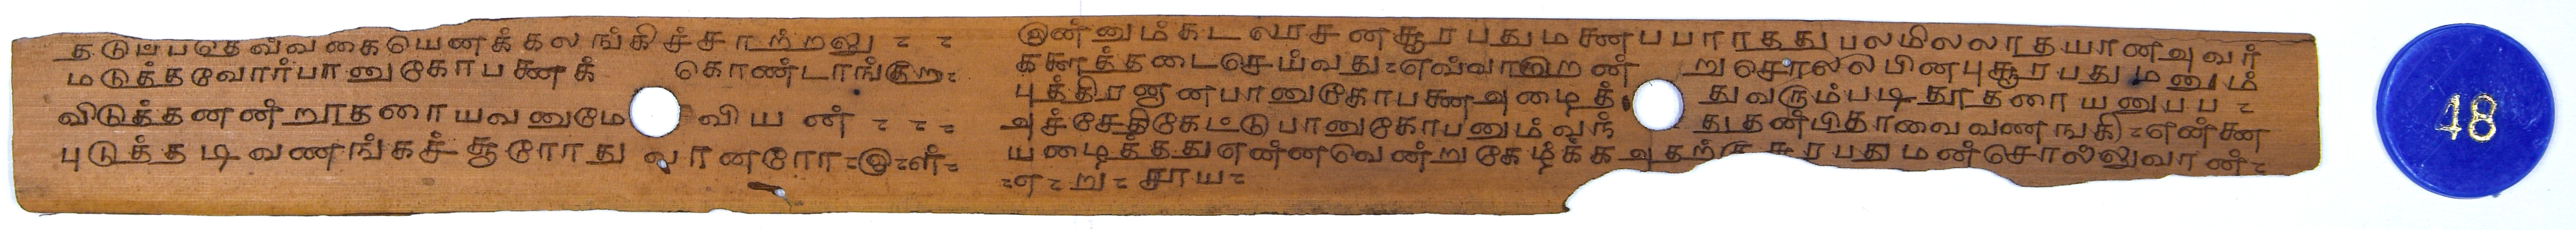 தடுபபடுதவ்வகையெனக் கலங்கிச்சாற்றலு
மடுத்தவோர்பானுகோபணைக் கொண்டாங்குறு
விடுத்தனன்றூதரையவனுமே வியன்
புடுத்தடிவணங்கச்சூரோது வானரோ உள்
இன்னும்கடலரசனசூரபதுமணபபாரததுபலமிலலாதயானஅவர்
களைத்தடைசெய்வது எவ்வாறென் றுசொலலியினபுசூரபதுமனும்
புத்திரனானபானுகோபணைஅழைத் துவரும்படிதூதரையனுபப
அச்சேதிகேட்டுபானுகோபனும்வந் துதன்பிதாவைவணஙகி என்னை
யழைத்ததுஎன்னவென்றுகேழ்க்கஅதற்கு சூரபதுமன்சொல்லுவாண்
எ று சூய
48